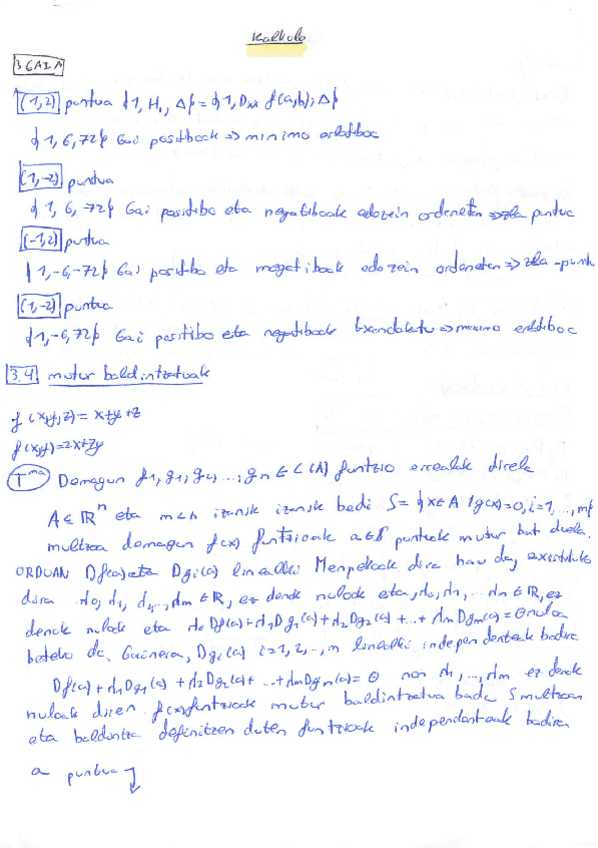 Kalkulo
3 GAIA
(1,2) puntua {1, H1, Δ} = {1, Dxx f(a,b), Δ}
{1, 6, 72} Gai positiboak => minimo erlatiboa
(1,-2) puntua
{1, 6, -72} Gai positibo eta negatiboak edozein ordenetan => zela puntua
(-1,2) puntua
{1, -6, -72} Gai positibo eta negatiboak edozein ordenetan => zela-puntu
(1,-2) puntua
{1, -6, 72} Gai positibo eta negatiboak txandakatu => maximo erlatiboa
3.4 mutur baldintzatuak
f(x,y,z) = x+y+z
f(x,y)=2x+zy
Tma Demagun f1, g1, g2, ..., gn ∈ C(A) funtzio errealak direla
A ⊆ ℝn eta m<n izanik izanik bedi S = {x∈A / g(x)=0, i=1, ..., m}
multzoa demagun f(x) funtzioak a∈S puntuak mutur bat duela.
ORDUAN Df(a) eta Dgi(a) linealki Menpekoak dira hau da, existituko
dira λ0, λ1, λ2, ..., λm ∈ ℝ, ez denak nuloak eta, λ0, λ1, ... λm ∈ ℝ, ez
denak nuloak eta λ0 Df(a)+λ1Dg1(a)+λ2Dg2(a)+...+λmDgm(a)=0 nuloa
beteko da. Gainera, Dgi(a) i=1,2,..,m linealki independenteak badira
Df(a)+λ1Dg1(a)+λ2Dg2(a)+...+λmDgm(a)=0 non λ1,...,λm ez denak
nuloak diren. f(x) funtzioak mutur baldintzatua badu S multzoan
eta baldintza definitzen duten funtzioak independenteak badira
a puntua